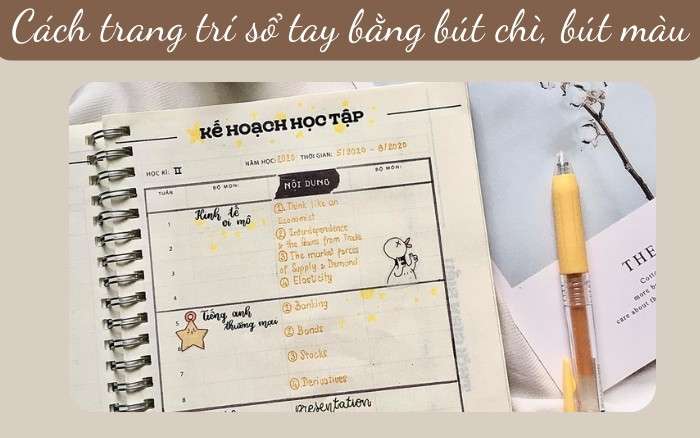 Cách trang trí sổ tay bằng bút chì, bút màu
KẾ HOẠCH HỌC TẬP
HỌC KÌ: II NĂM HỌC: 2020 THỜI GIAN: 5/2020 - 8/2020
TUẦN BỘ MÔN: NỘI DUNG BỘ MÔN:
1
2
3
4
Kinh tế
vi mô
① Think like an
Economist
② Interdependence
& the Gains from Trade
③ The market forces
of Supply & Demand
④ Elasticity
5
6
7
8
Tiếng anh
thương mại
① Banking
② Bonds
③ Stocks
④ Derivatives
presentation
THE
Cotto
more b
care about